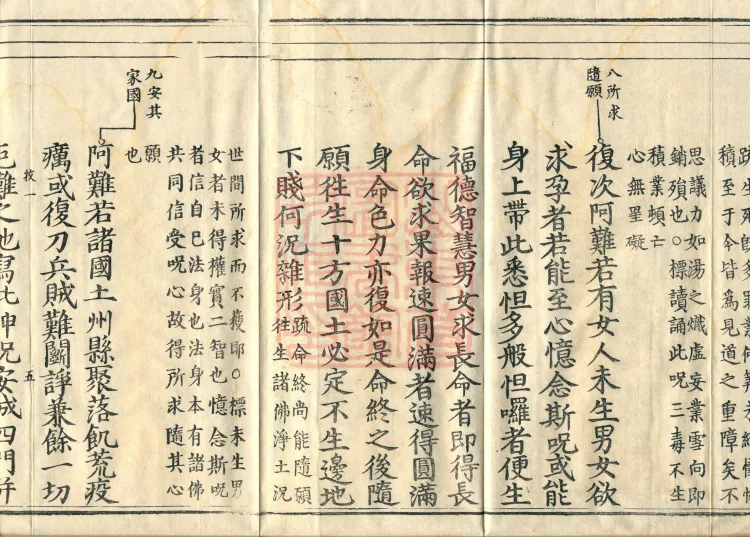 積至于今皆為見道之重障矣不
思議力如湯之熾虛妄業雪向即
銷殞也○標讀誦此呪三毒不生
積業頓亡
心無罣礙
八所求
隨願
復次阿難若有女人未生男女欲
求孕者若能至心憶念斯呪或能
身上帶此悉怛多般怛囉者便生
福德智慧男女求長命者即得長
命欲求果報速圓滿者速得圓滿
身命色力亦復如是命終之後隨
願徃生十方國土必定不生邊地
下賤何況雜形
疏命終尚能隨願
徃生諸佛淨土況
世間所求而不獲耶○標未生男
女者未得權實二智也憶念斯呪
者信自己法身也法身本有諸佛
共同信受呪心故得所求隨其心
願
也
九安其
家國
阿難若諸國土州縣聚落飢荒疫
癘或復刀兵賊難鬬諍兼餘一切
厄難之地寫此神呪安城四門并
攱一
五